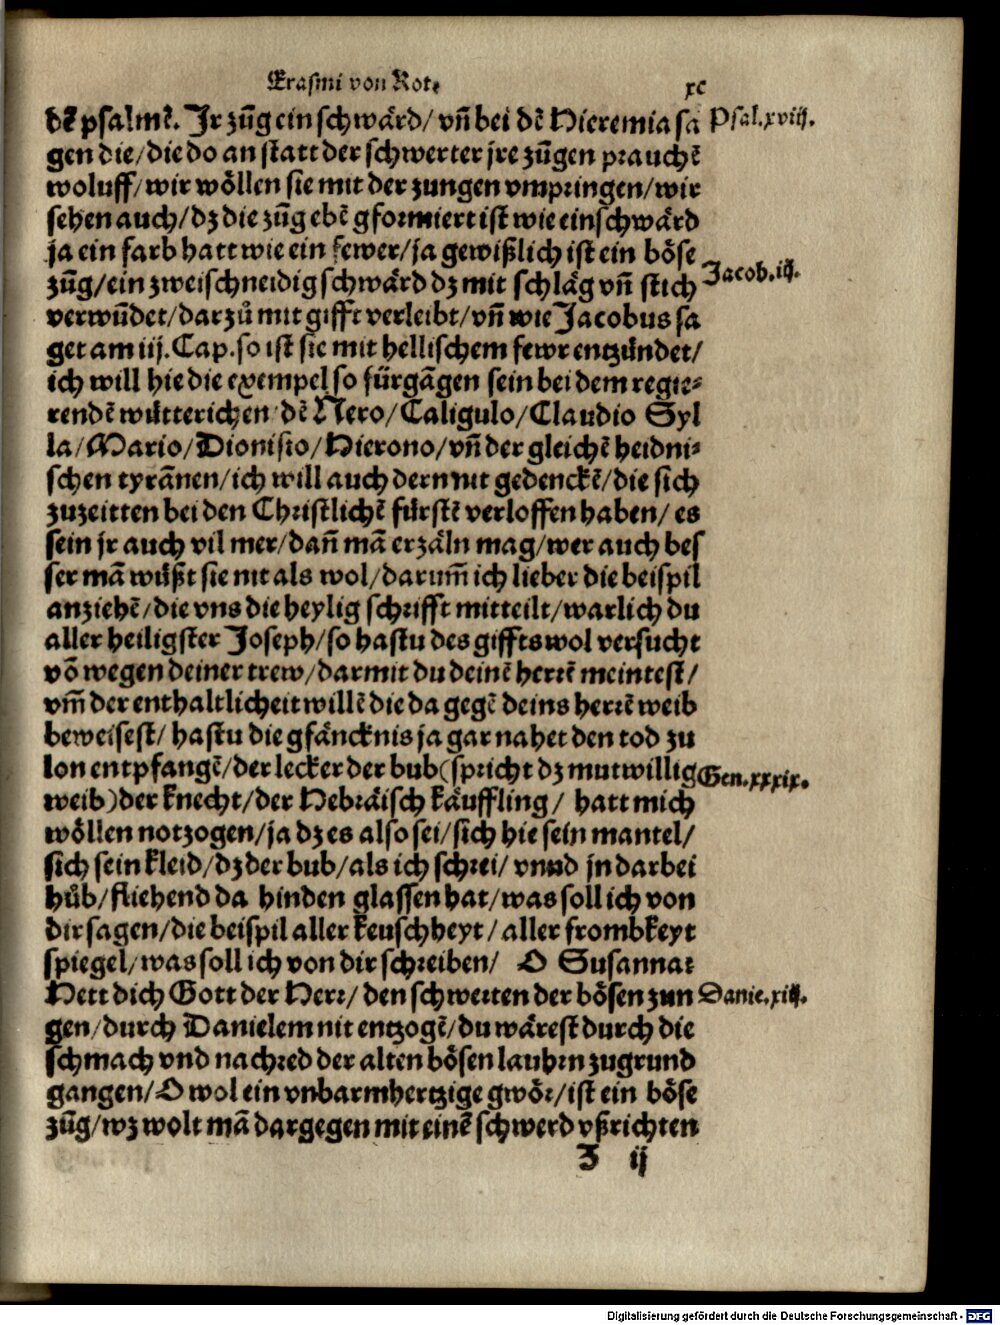 Erasmi von Rot. xc
dē psalmē. Jr zūg ein schwärd/ vñ bei dē Hieremia sa Psal.xviij.
gen die/die do an statt der schwerter jre zūgen prauchē
woluff/wir wöllen sie mit der zungen vmpringen/wir
sehen auch/dz die zūg ebē gformiert ist wie ein schwärd
ja ein farb hatt wie ein fewer/ja gewißlich ist ein böse
zūg/ein zweischneidig schwärd dz mit schläg vñ stich Jacob.iij.
verwūdet/darzů mit gifft verleibt/vñ wie Jacobus sa
get am iij. Cap. so ist sie mit hellischem fewr entzündet/
ich will hie die exempel so fürgāgen sein bei dem regie⸗
rendē wütterichen dē Nero/Caligulo/Claudio Syl
la/Mario/Dionisio/Hierono/vñ der gleichē heidni⸗
schen tyrānen/ich will auch dern nit gedenckē/die sich
zuzeitten bei den Christlichē fürstē verloffen haben/ es
sein jr auch vil mer/dañ mā erzäln mag/wer auch bes
ser mā wüßt sie nit als wol/darum̄ ich lieber die beispil
anziehē/die vns die heylig schrifft mitteilt/warlich du
aller heiligster Joseph/so hastu des giffts wol versucht
vō wegen deiner trew/darmit du deinē herrē meintest/
vm̄ der enthaltlicheit willē die da gegē deins herrē weib
beweisest/ hastu die gfäncknis ja gar nahet den tod zu
lon entpfangē/der lecker der bub(spricht dz mutwillig Gen.xxxix.
weib)der knecht/der Hebräisch käuffling/ hatt mich
wöllen notzogen/ja dz es also sei/sich hie sein mantel/
sich sein kleid/dz der bub/als ich schrei/ vnnd jn darbei
hůb/fliehend da hinden glassen hat/was soll ich von
dir sagen/die beispil aller keuschheyt/ aller frombkeyt
spiegel/was soll ich von dir schreiben/ O Susanna:
Hett dich Gott der Herr/ den schwerten der bösen zun Danie.xiij.
gen/durch Danielem nit entzogē/du wärest durch die
schmach vnd nachred der alten bösen laubrn zugrund
gangen/O wol ein vnbarmhertzige gwör/ist ein böse
zūg/wz wolt mā dargegen mit einē schwerd vßrichten
Z ij
Digitalisierung gefördert durch die Deutsche Forschungsgemeinschaft - DFG